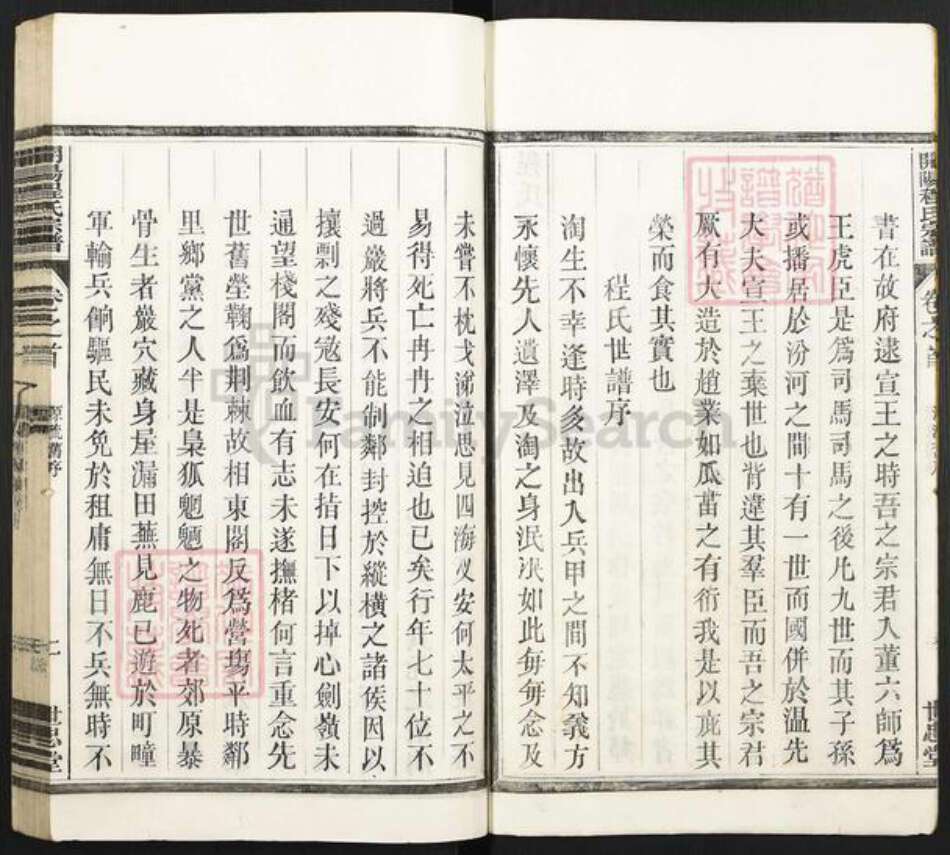 書在故府逮宣王之時吾之宗君入董六師爲
王虎臣是爲司馬司馬之後凡九世而其子孫
或播居於汾河之間十有一世而國併於溫先
大夫宣王之棄世也背違其羣臣而吾之宗君
厥有大造於趙業如瓜瓞之有衍我是以庇其
榮而食其實也
程氏世譜序
淘生不幸逢時多故出入兵甲之間不知義方
永懷先人遺澤及淘之身泯泯如此每每念及
未嘗不枕戈涕泣思見四海乂安何太平之不
易得死亡冉冉之相迫也已矣行年七十位不
過巖將兵不能制鄰封控於縱橫之諸侯因以
攘剽之殘寇長安何在指日下以掉心劍嶺未
通望棧閣而飲血有志未遂撫楮何言重念先
世舊塋鞠爲荆棘故相東閣反爲營塲平時鄰
里鄉黨之人半是梟狐魍魎之物死者郊原暴
骨生者巖穴藏身屋漏田蕪見鹿已遊於町疃
軍輸兵餉驅民未免於租庸無日不兵無時不
世思堂
程氏宗譜
卷之首
世思堂
FamilySearch